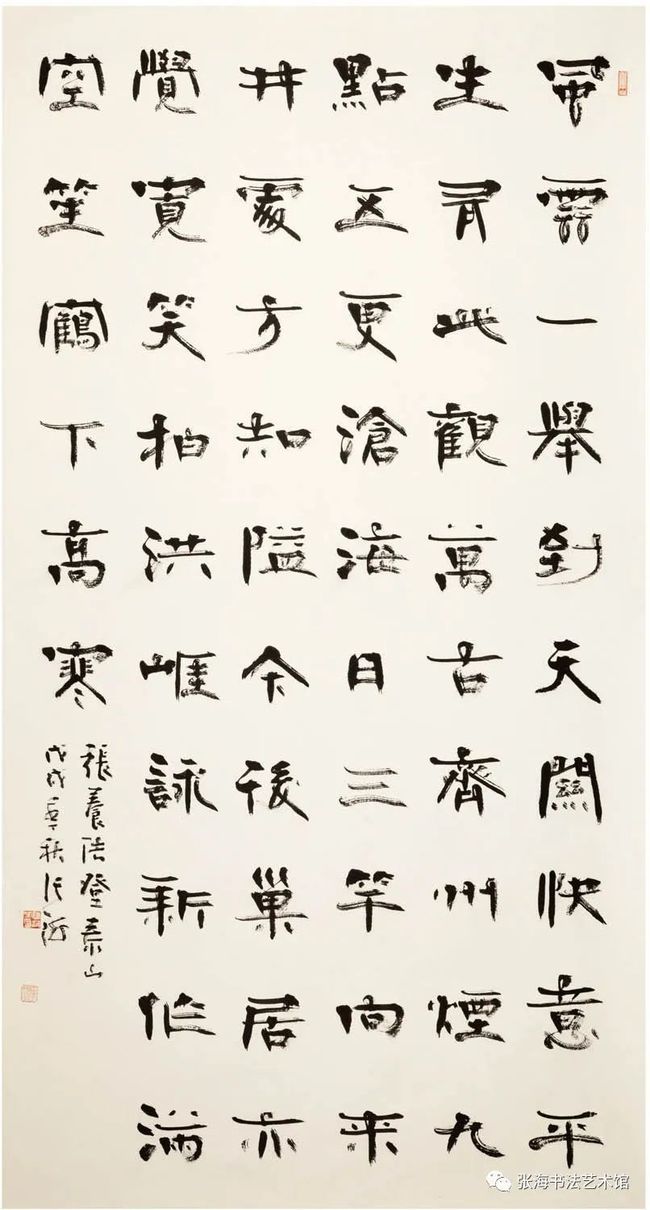 風雲一舉到天關快意平
生有此觀萬古齊州煙九
點五更滄海日三竿向來
井處方知隘今後巢居亦
覺寬笑拍洪崕詠新作滿
空笙鶴下高寒
張養浩登泰山
戊戌秋張海
张海书法艺术馆